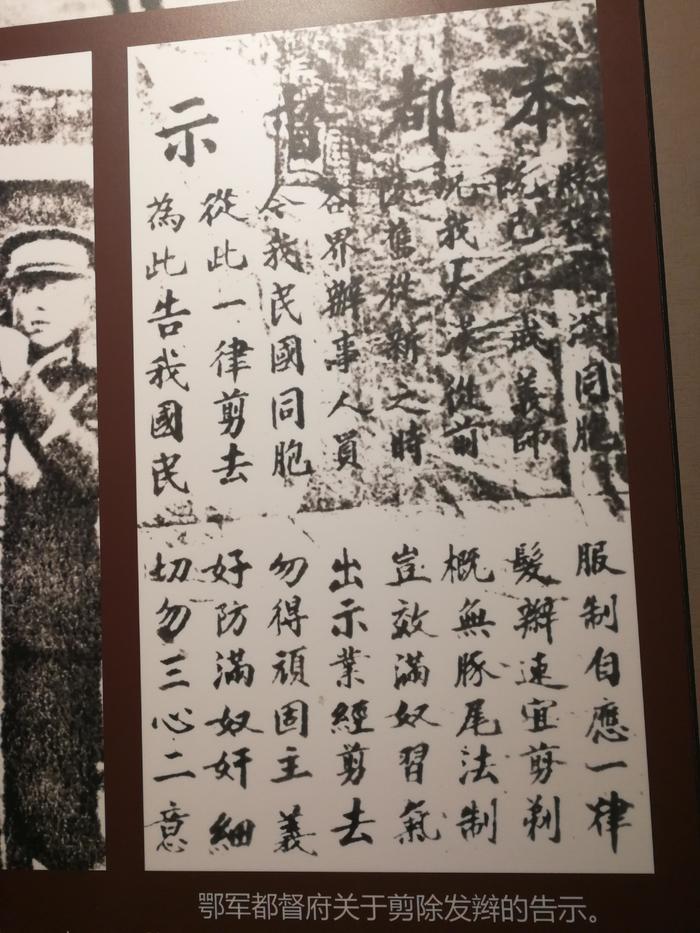 本都督示
漢同胞服制自應一律
已成義師髮辮速宜剪剃
況我大漢從前概無豚尾法制
除舊從新之時豈效滿奴習氣
各界辦事人員出示業經剪去
令我民國同胞勿得頑固主義
從此一律剪去好防滿奴奸細
為此告我國民切勿三心二意
鄂军都督府关于剪除发辫的告示。